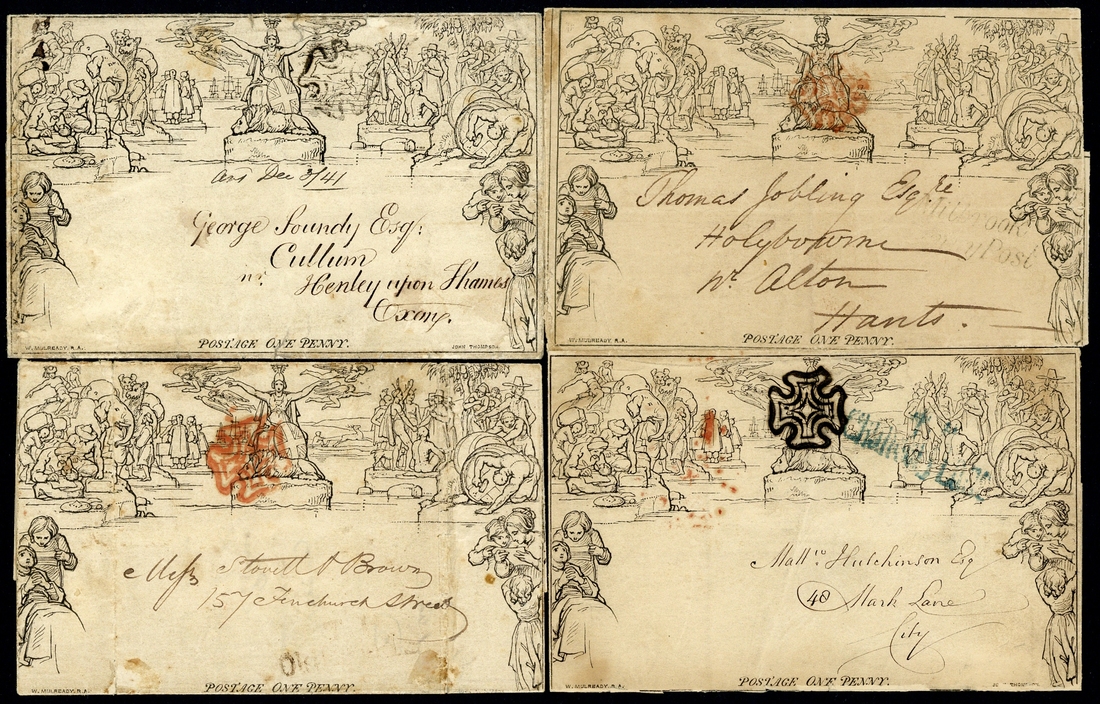 Ans Dec 3/41
George Soundy Esq:
Cullum
nr. Henley upon Thames
Oxon.
W. MULREADY, R.A.
POSTAGE ONE PENNY.
JOHN THOMPSON
Thomas Jobling Esqre
Holybourne
nr Alton
Hants.
Penny Post
W. MULREADY, R.A.
POSTAGE ONE PENNY.
Messrs Stovell & Brown
157 Fenchurch Street
W. MULREADY, R.A.
POSTAGE ONE PENNY.
Hutchinson Esq
48 Mark Lane
City
W. MULREADY, R.A.
POSTAGE ONE PENNY.
THOMPSON